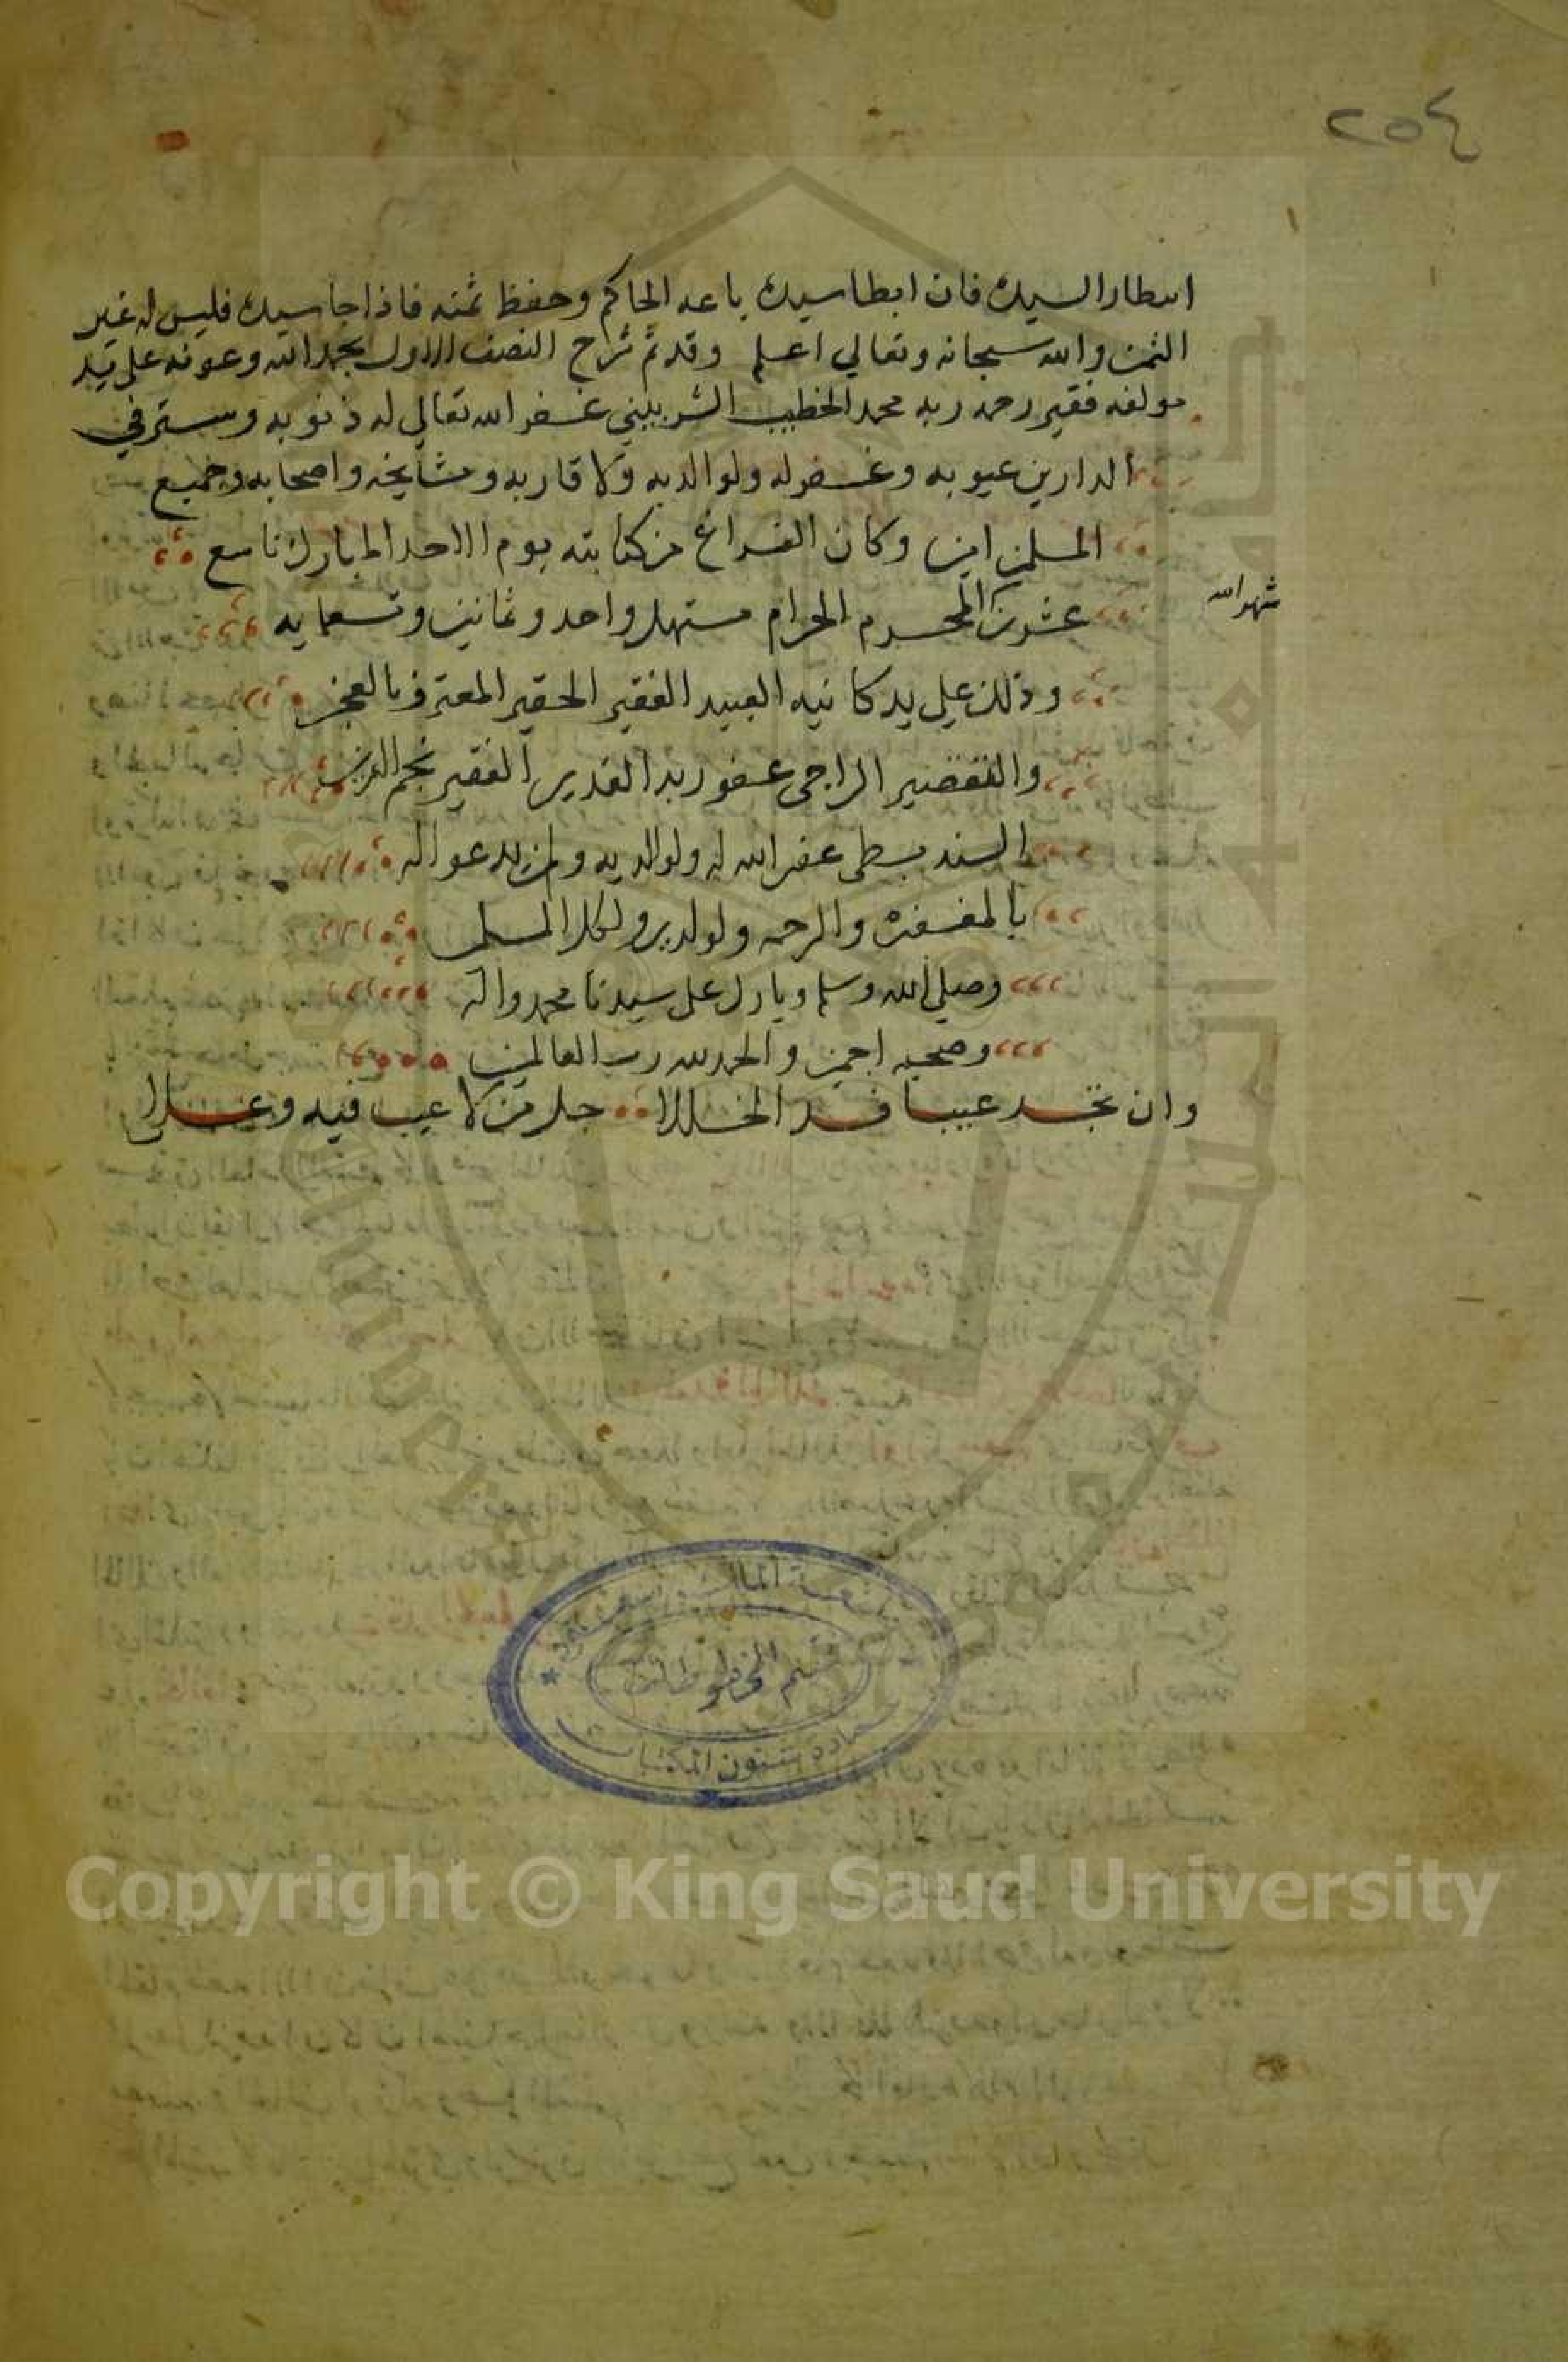 ٢٥٤
انتطارا لسيده فان ابطا سيده باعه الحاكم وحفظ ثمنه فاذا جا سيده فليس له غير
الثمن والله سبحانه وتعالي اعلم وقد تم شرح النصف الاول بحمد الله وعونه على يد
مولفه فقير رحمه ربه محمد الخطيب الشربيني غفر الله تعالي له ذنوبه وستر في
الدارين عيوبه وغفر له ولوالديه ولاقاربه ومشايخه واصحابه وجميع
المسلمين امين وكان الفراغ من كتابته يوم الاحد المبارك تاسع
شهر الله
عشر من المحرم الحرام مستهل واحد وثمانين وتسعمايه
وذلك علي يد كاتبه العبيد الفقير الحقير المعترف بالعجز
والتقصير الراجي عفو ربه القدير الفقير نجم الدين
السندبسطي غفر الله له ولوالديه ولمن يدعوا له
بالمغفرة والرحمه ولوالديه ولكل المسلمين
وصلي الله وسلم وبارك على سيدنا محمد واله
وصحبه اجمعين والحمد لله رب العالمين
وان تجد عيبا فسد الخللا جل من لا عيب فيه وعلا
جامعة الملك سعود
قسم المخطوطات
عمادة شئون المكتبات
Copyright © King Saud University